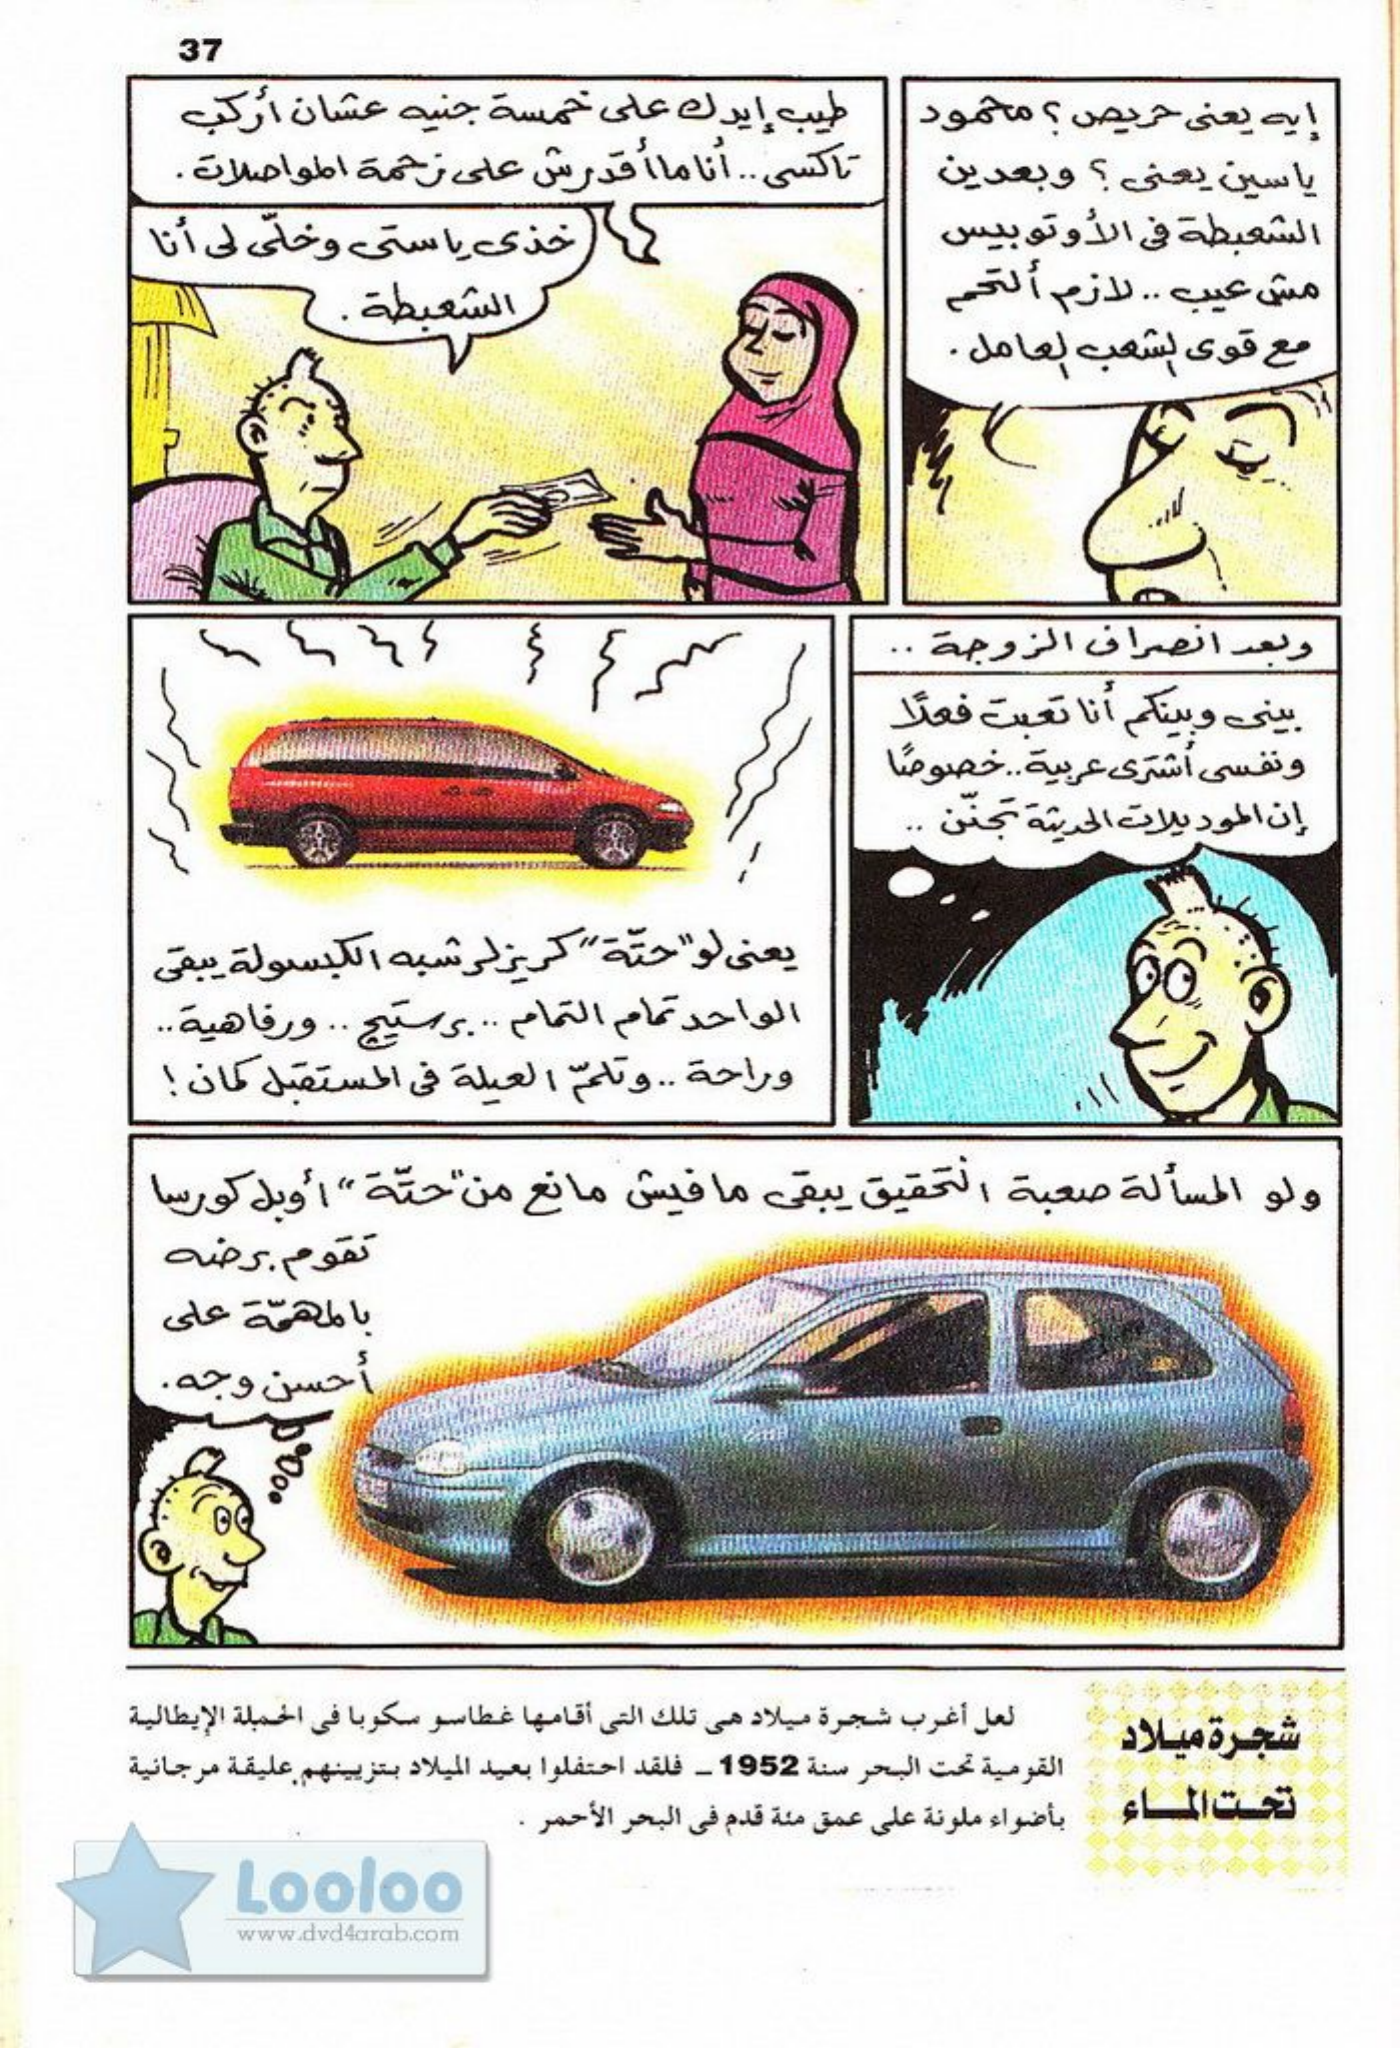 37
إيه يعنى حريص ؟ محمود
ياسين يعنى ؟ وبعدين
الشعبطة فى الأوتوبيس
مش عيب .. لازم ألتحم
مع قوى الشعب العامل .
طيب إيدك على خمسة جنيه عشان أركب
تاكسى .. أنا ما أقدرش على زحمة المواصلات .
خذى ياستى وخلّى لى أنا
الشعبطة .
وبعد انصراف الزوجة ..
بينى وبينكم أنا تعبت فعلًا
ونفسى أشترى عربية .. خصوصًا
إن الموديلات الحديثة تجنّن ..
يعنى لو "حتّة" كريزلر شبه الكبسولة يبقى
الواحد تمام التمام .. برستيج .. ورفاهية ..
وراحة .. وتلمّ العيلة فى المستقبل كمان !
ولو المسألة صعبة التحقيق يبقى مافيش مانع من "حتّة" أوبل كورسا
تقوم برضه
بالمهمّة على
أحسن وجه .
شجرة ميلاد
تحت الماء
لعل أغرب شجرة ميلاد هى تلك التى أقامها غطاسو سكوبا فى الحملة الإيطالية
القومية تحت البحر سنة 1952 ــ فلقد احتفلوا بعيد الميلاد بتزيينهم عليقة مرجانية
بأضواء ملونة على عمق مئة قدم فى البحر الأحمر .
Looloo
www.dvd4arab.com